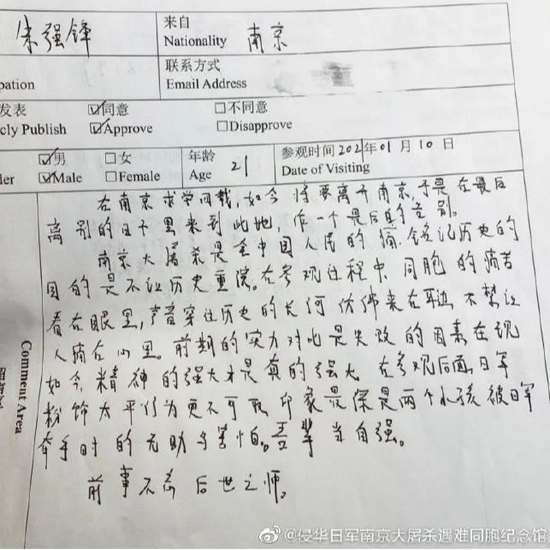 朱强锋 来自 南京
Nationality
联系方式
pation Email Address
发表 ☑同意 □不同意
cly Publish ☑Approve □Disapprove
☑男 □女 年龄 21 参观时间 202 年 01 月 10 日
der ☑Male □Female Age Date of Visiting
在南京求学四载,如今将要离开南京,于是在最后
离别的日子里来到此地,作一个最后的告别。
南京大屠杀是全中国人民的痛,铭记历史的
目的是不让历史重演。在参观过程中,同胞的痛苦
看在眼里,声音穿过历史的长河仿佛来在耳边,不禁让
人痛在心里。前期的实力对比是失败的因素在现
如今,精神的强大才是真的强大。在参观后面,日军
粉饰太平行为更不可取,印象最深是两个小孩被日军
牵手时的无助与害怕。吾辈当自强。
前事不忘 后世之师。
Comment Area
@侵华日军南京大屠杀遇难同胞纪念馆